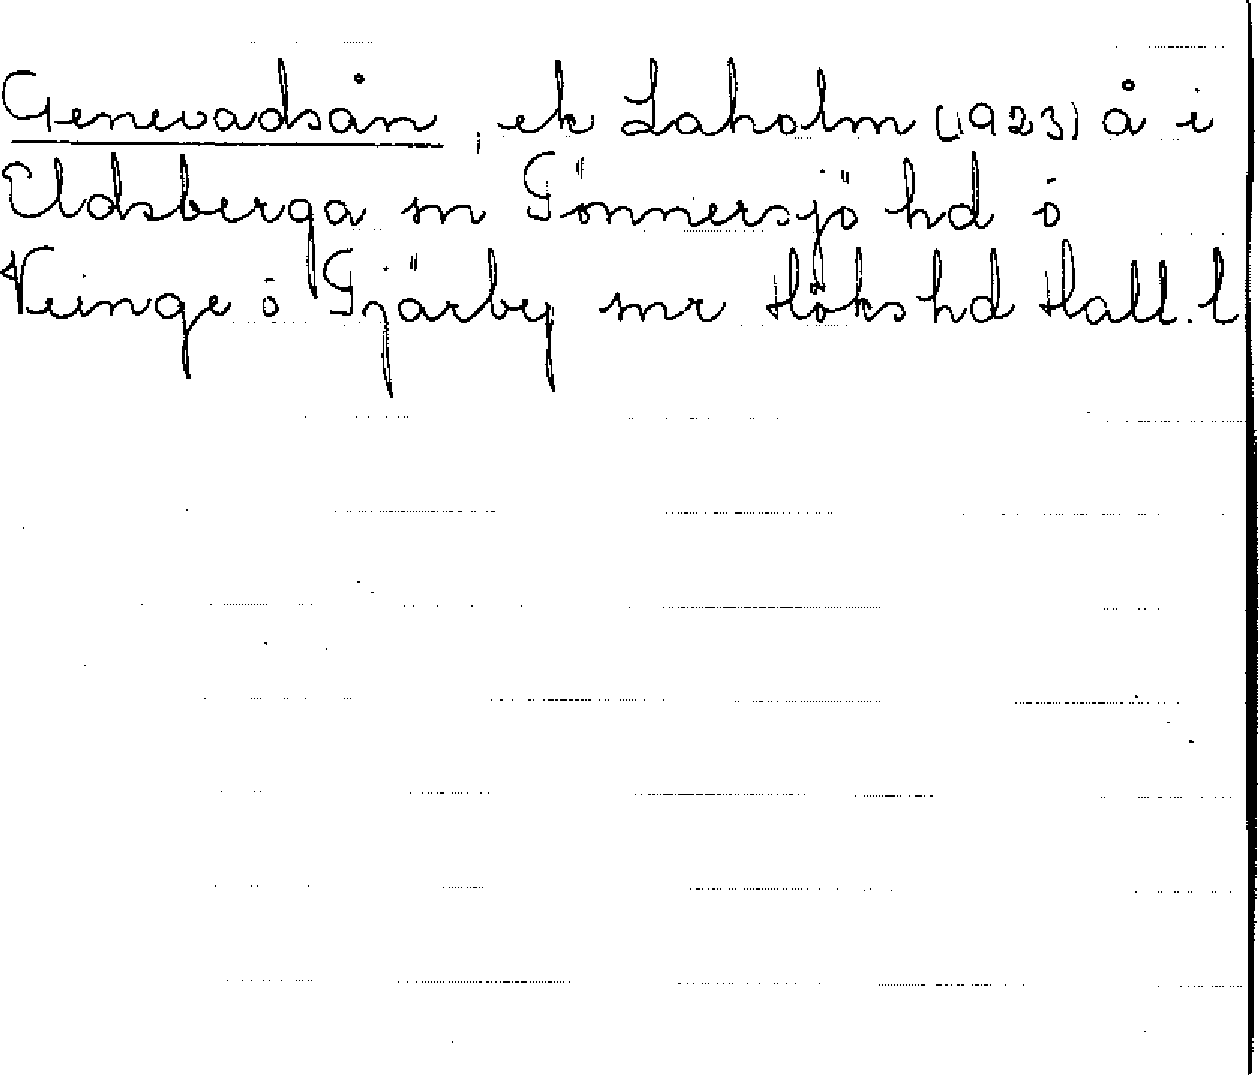 Genevadsån, ek Laholm (1923) å i
Eldsberga sn Tönnersjö hd ö
Veinge ö Tjärby snr Höks hd Hall. l